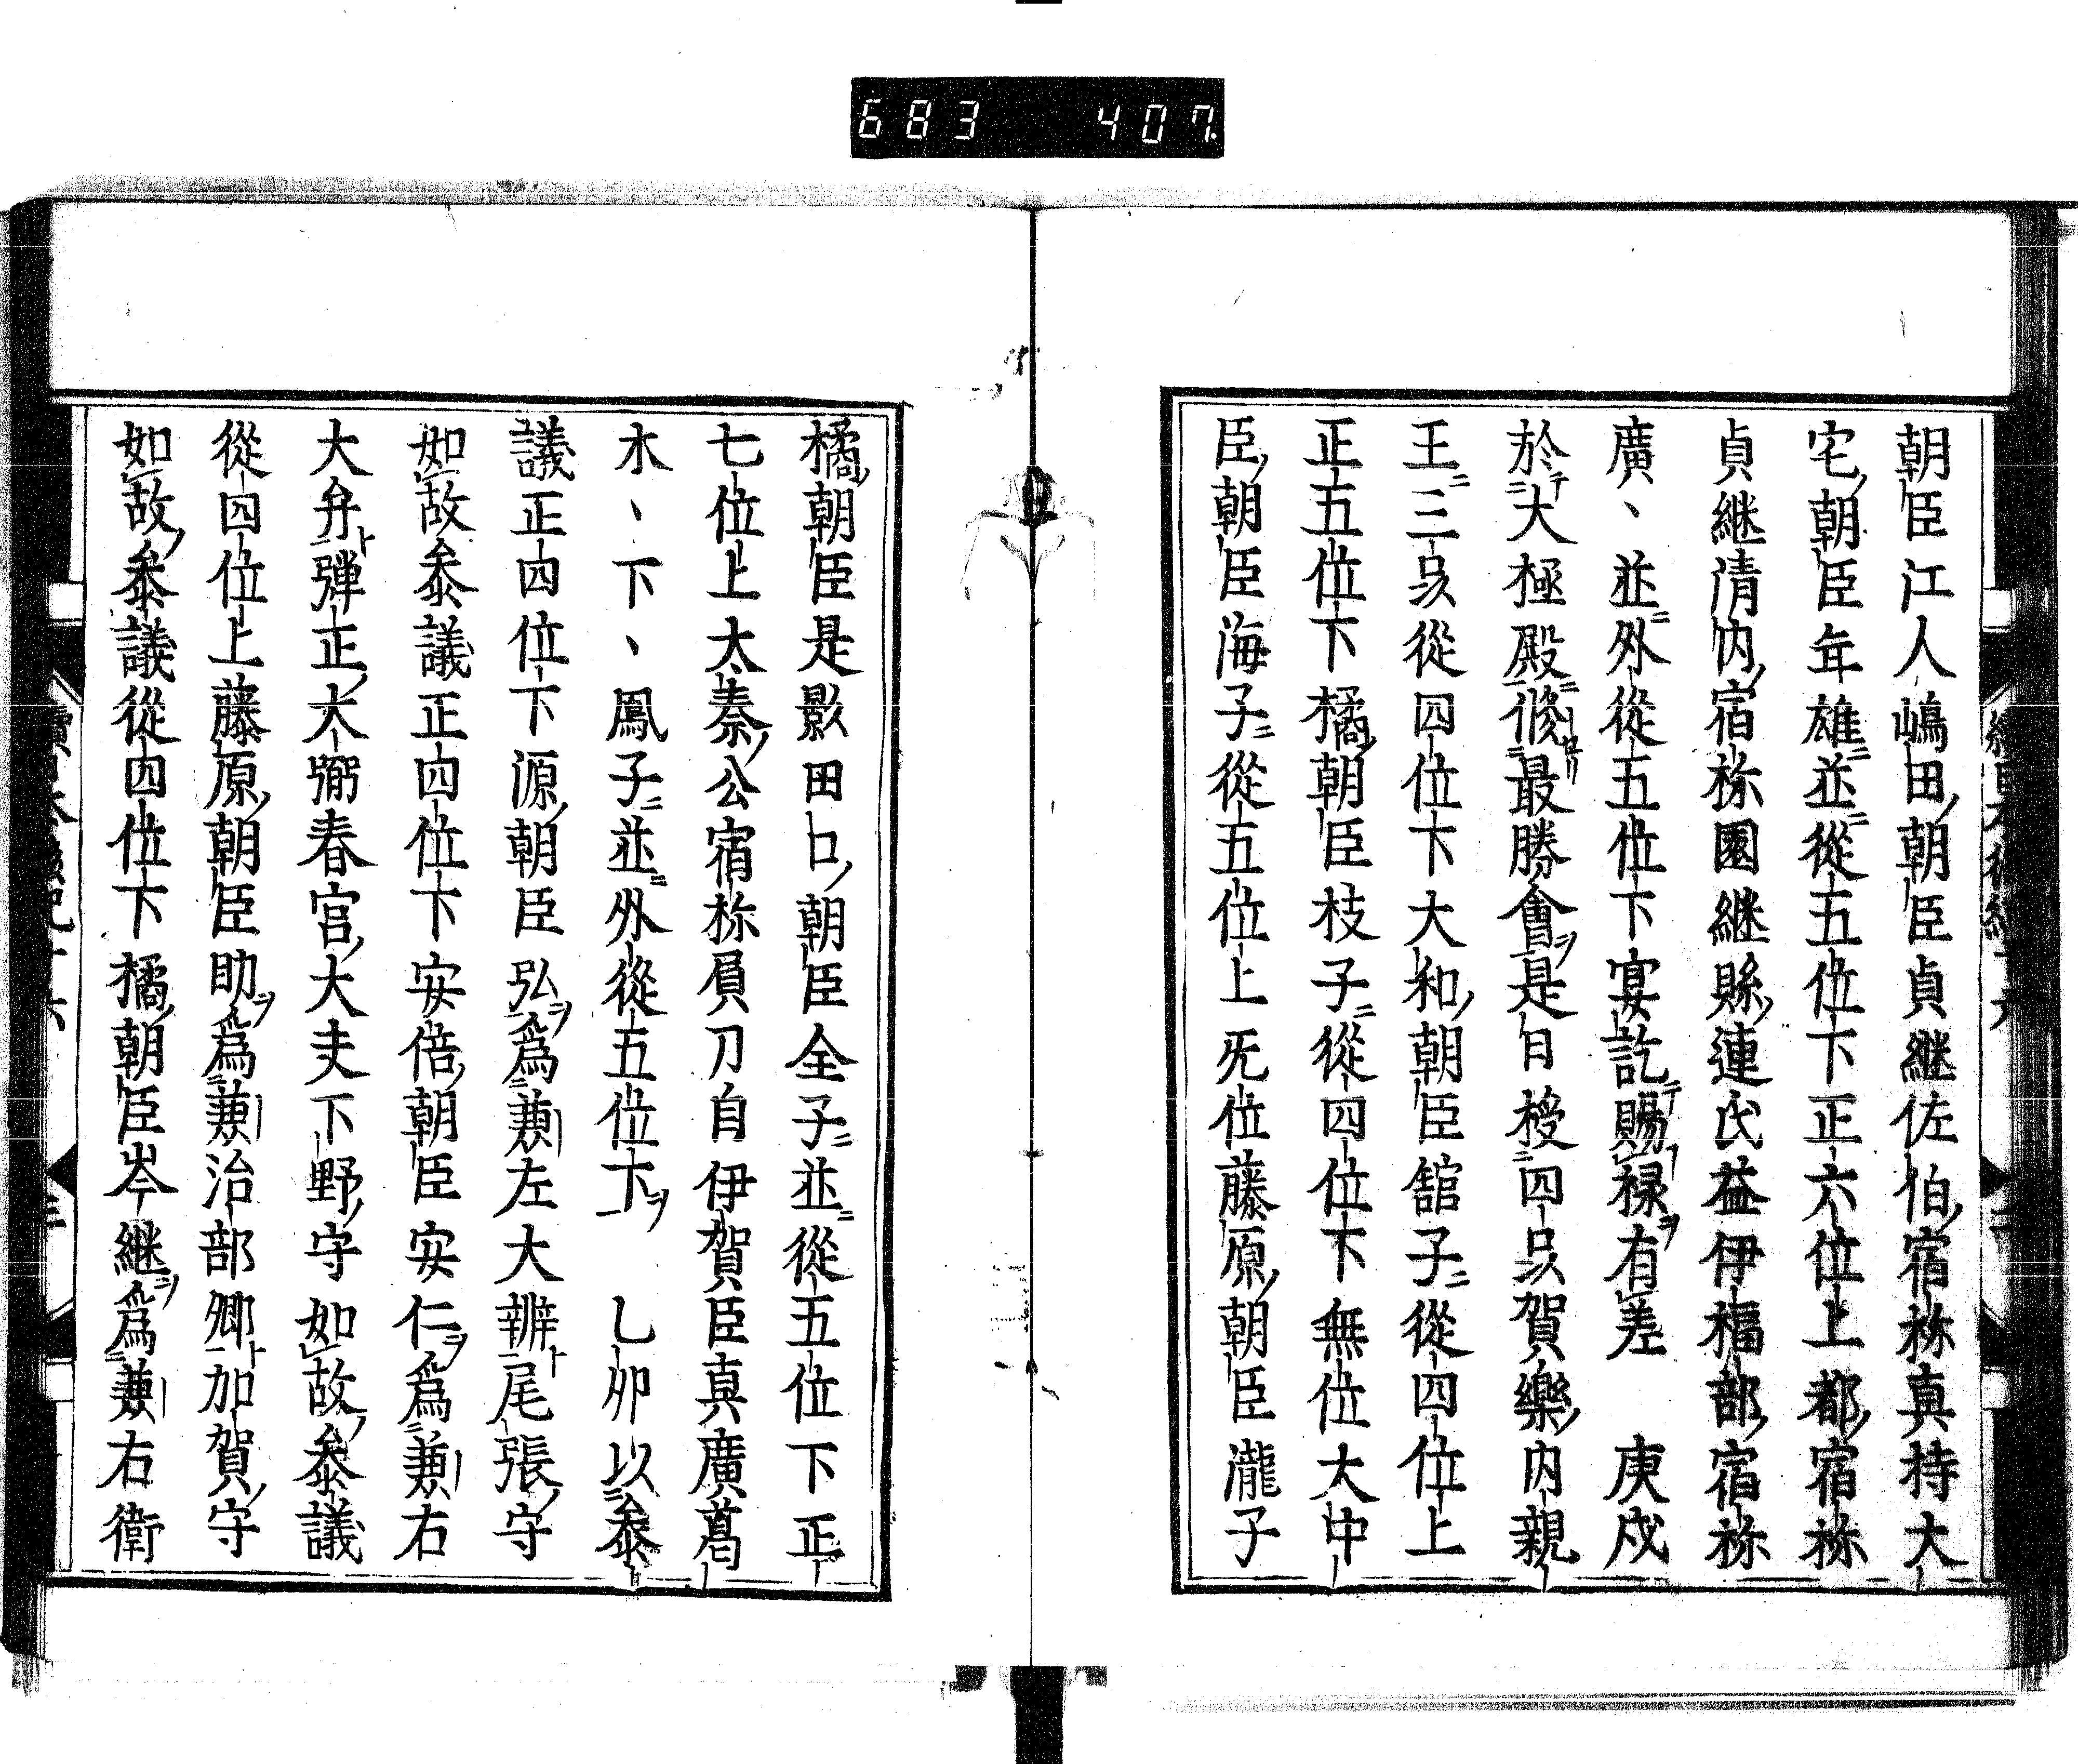 683 407
朝臣江人嶋田朝臣貞継佐伯宿祢真持大
宅朝臣年雄並從五位下正六位上都宿祢
貞継清内宿祢園継縣連氏益伊福部宿祢
廣〻並外從五位下宴訖賜禄有差 庚戌
於大極殿修最勝會是日授四品賀樂内親
王三品從四位下大和朝臣舘子從四位上
正五位下橘朝臣枝子從四位下無位大中
臣朝臣海子從五位上无位藤原朝臣瀧子
橘朝臣是影田口朝臣全子並從五位下正
七位上太秦公宿祢屓刀自伊賀臣真廣葛
木〻下〻鳳子並外從五位下 乙卯以叅
議正四位下源朝臣弘爲兼左大辨尾張守
如故叅議正四位下安倍朝臣安仁爲兼右
大弁彈正大弼春宮大夫下野守如故叅議
從四位上藤原朝臣助爲兼治部卿加賀守
如故叅議從四位下橘朝臣岑継爲兼右衛